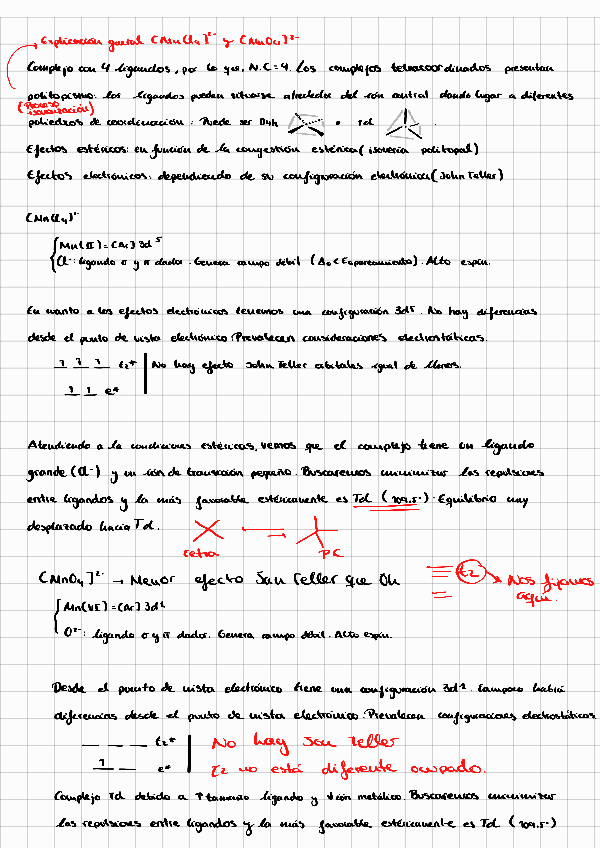 Explicación general [MnCl4]2- y [MnO4]2-
Complejo con 4 ligandos, por lo que, N.C=4. Los complejos tetracoordinados presentan
politopismo: los ligandos pueden situarse alrededor del ión central dando lugar a diferentes
(Proceso isomerización)
poliedros de coordinación: Puede ser D4h o Td .
Efectos estéricos: en función de la congestión estérica (isomería politopal)
Efectos electrónicos: dependiendo de su configuración electrónica (John Teller)
[MnCl4]2-
Mn(II) = [Ar] 3d5
Cl-: ligando σ y π dador. Genera campo débil (Δo < Eapareamiento). Alto espín.
En cuanto a los efectos electrónicos tenemos una configuración 3d5. No hay diferencias
desde el punto de vista electrónico. Prevalecen consideraciones electrostáticas.
1 1 1 t2* No hay efecto John Teller orbitales igual de llenos.
1 1 e*
Atendiendo a la condiciones estéricas, vemos que el complejo tiene un ligando
grande (Cl-) y un ión de transición pequeño. Buscaremos minimizar las repulsiones
entre ligandos y la más favorable estéricamente es Td (109,5º). Equilibrio muy
desplazado hacia Td.
tetra PC
[MnO4]2- → Menor efecto Jan Teller que Oh
t2 → Nos fijamos
aquí.
Mn(VI) = [Ar] 3d1
O2-: ligando σ y π dador. Genera campo débil. Alto espín.
Desde el punto de vista electrónico tiene una configuración 3d1. Tampoco habrá
diferencias desde el punto de vista electrónico. Prevalecen configuraciones electrostáticas
_ _ _ t2* No hay Jan Teller
1 _ e* t2 no está diferente ocupado.
Complejo Td debido a ↑ tamaño ligando y ↓ ión metálico. Buscaremos minimizar
las repulsiones entre ligandos y la más favorable estéricamente es Td (109,5º)